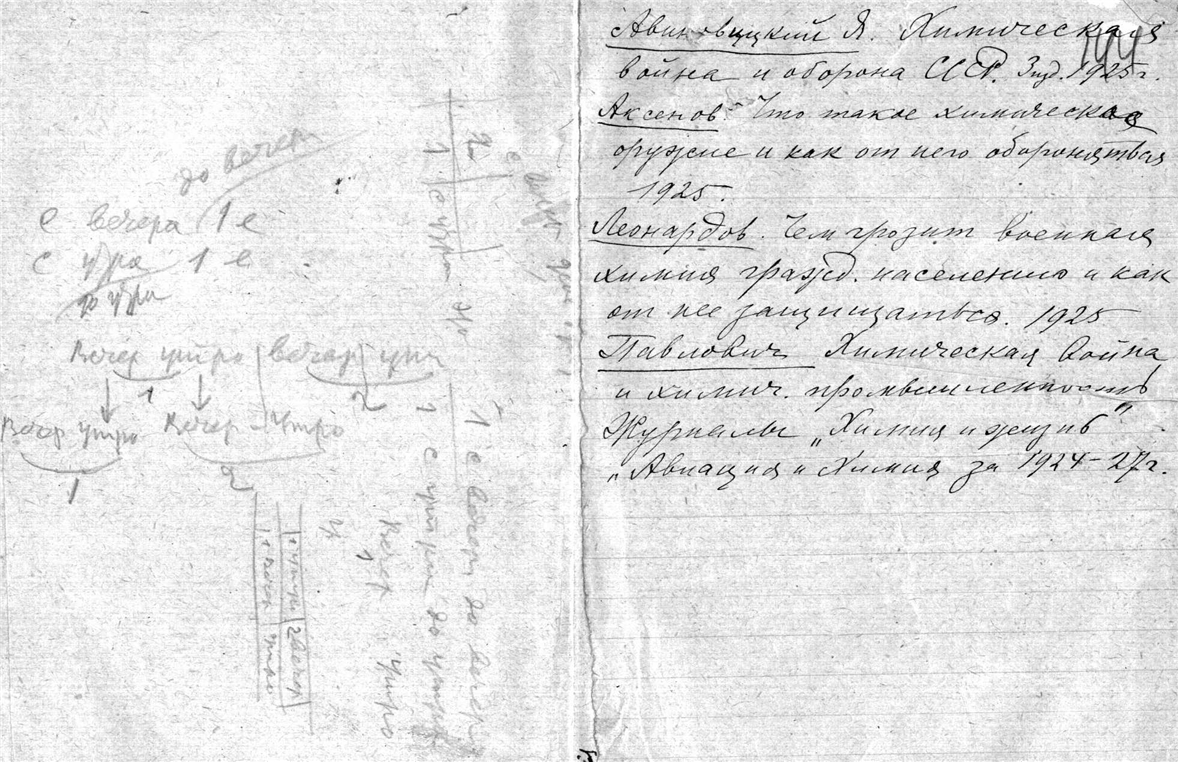 до вечера
с вечера 1 е
с утра 1 е
до утра
Вечер утро вечер утро
1 2
Вечер Утро Вечер Утро
1 2
2
1 с утра
1 с вечера до вечера
1 с утра до утра
Вечер Утро
1 утро 2 вечер
Авиновицкий Я. Химическая
война и оборона СССР. Изд. 1925 г.
Аксенов. Что такое химическое
оружие и как от него обороняться
1925.
Леонардов. Чем грозит военная
химия гражд. населению и как
от нее защищаться. 1925
Павлович Химическая война
и химич. промышленность
Журналы „Химия и жизнь"
„Авиация и Химия за 1924–27 г.